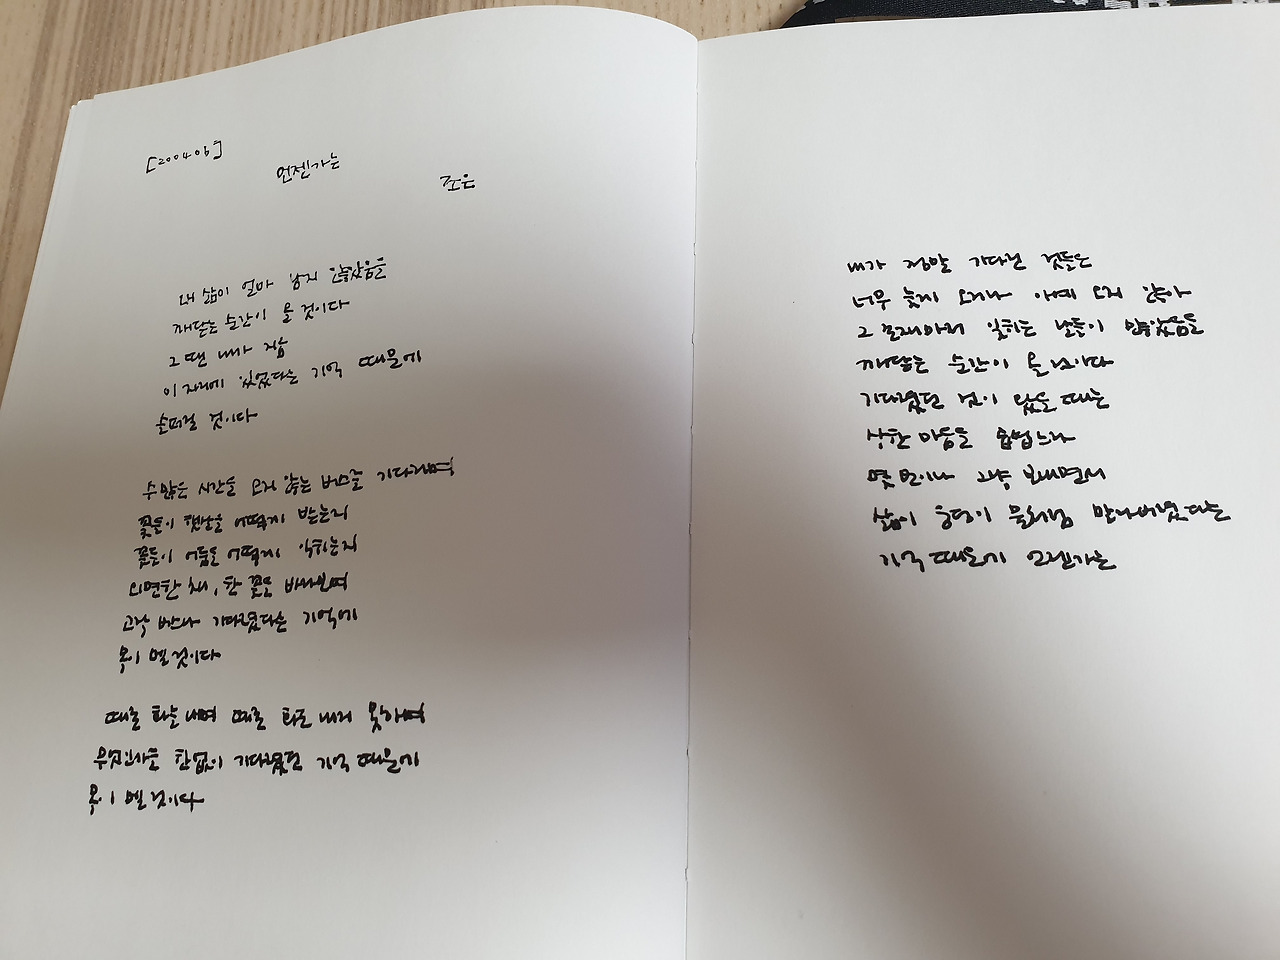 [200406]
언젠가는
조은
내 삶이 얼마 남지 않았음을
깨닫는 순간이 올 것이다
그 땐 내가 지금
이 자리에 있었다는 기억 때문에
슬퍼질 것이다
수많은 시간을 오지 않는 버스를 기다리며
꽃들이 햇살을 어떻게 받는지
꽃들이 어둠을 어떻게 익히는지
외면한 채, 한 곳을 바라보며
고작 버스나 기다렸다는 기억에
목이 멜 것이다
때로 화를 내며 때로 화도 내지 못하며
무엇인가를 한없이 기다렸던 기억 때문에
목이 멜 것이다
내가 정말 기다린 것들은
너무 늦게 오거나 아예 오지 않아
그 존재마저 잊히는 날들이 많았음을
깨닫는 순간이 올 것이다
기다렸던 것이 왔을 때는
상한 마음을 곱씹느라
몇 번이나 그냥 보내면서
삶이 웅덩이 물처럼 말라버렸다는
기억 때문에 언젠가는